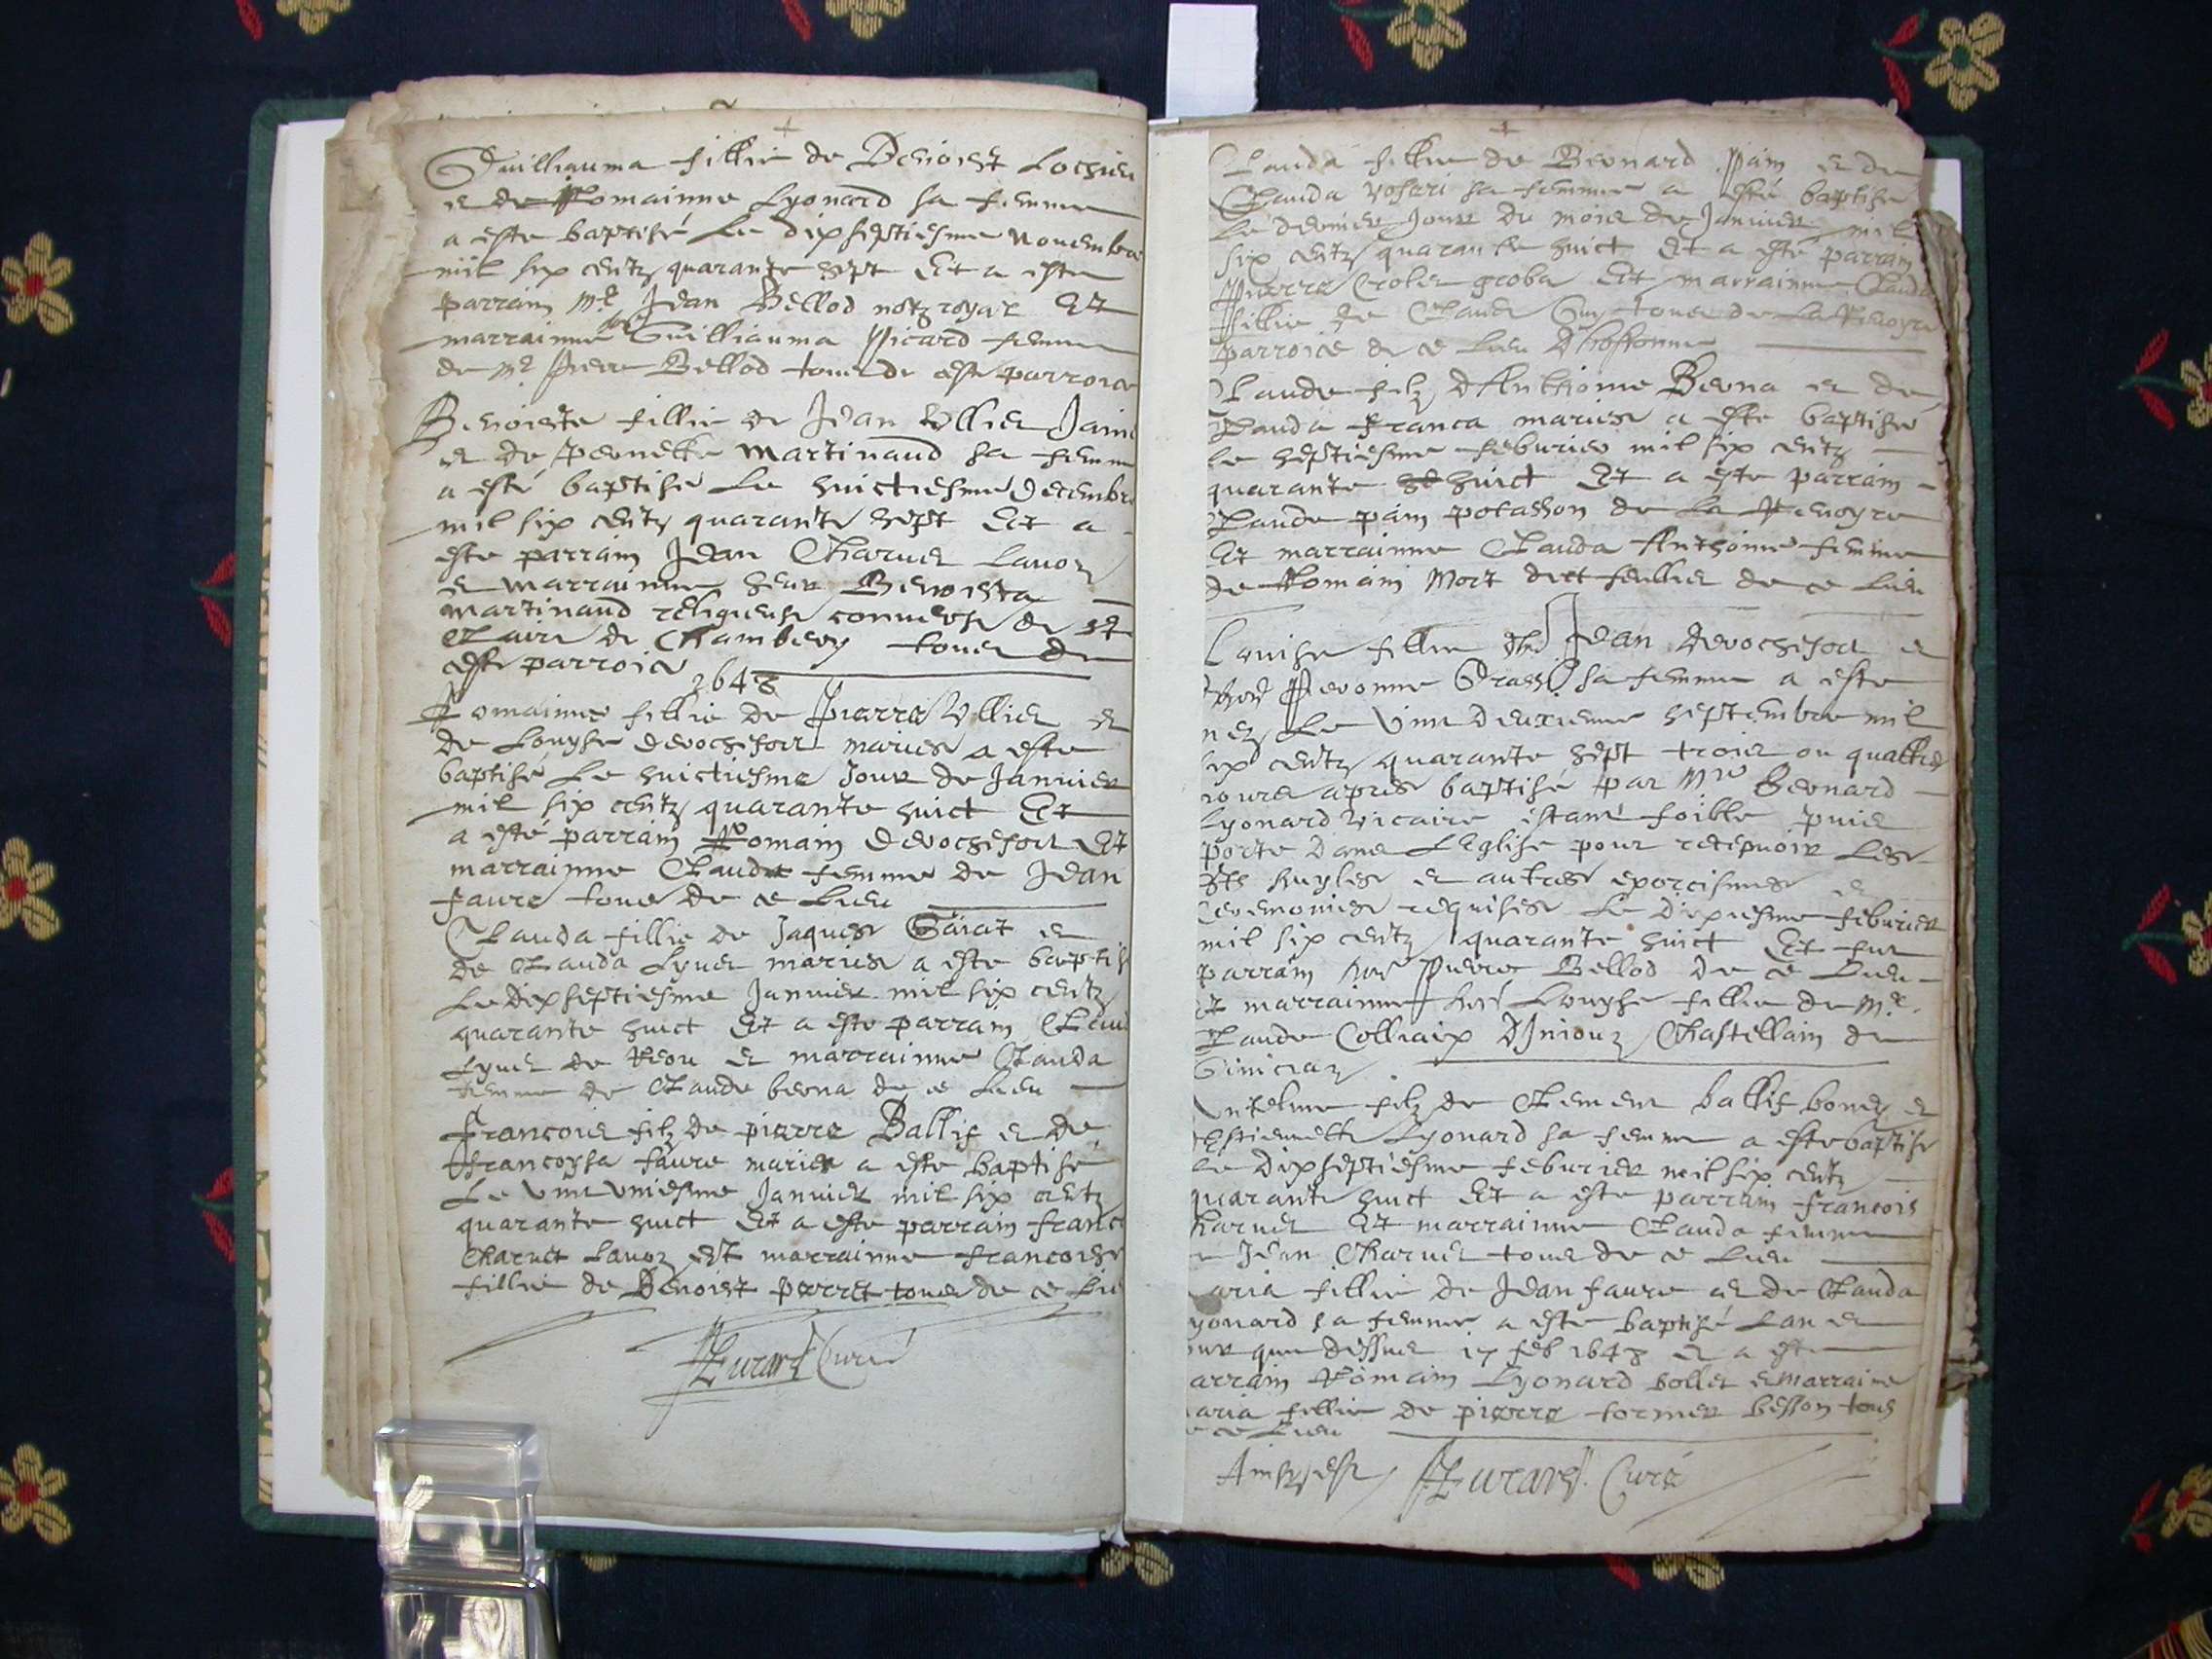 Guilliauma fillie de Benoist Lochier
et de Romainne Lyonard sa femme
a este baptisé Le dixseptiesme Novembre
mil six centz quarante sept Et a este
parrain Mr Jean Bellod notz royal Et
marrainne Guilliauma Picard femme
de Mr Pierre Bellod tous de ceste parroice
Benoiste fillie de Jean Ullier Jaine
et de pernette Martinaud sa femme
a esté baptisé Le huictiesme Decembre
mil six centz quarante sept Et a
este parrain Jean Charvet Lavoz
et marrainne seur Benoista
Martinaud religieuse converse de ste
Claire de Chambery tous de
ceste parroice
1648
Romainne fillie de Pierre Ullier et
de Louyse Derochefort mariez a este
baptisé Le huictiesme Jour de Janvier
mil six centz quarante huict Et
a esté parrain Romain Derochefort Et
marrainne Claude femme de Jean
faure tous de ce Lieu
Clauda fillie de Jaques Garat et
de Clauda Lyvet mariez a este baptisé
Le dixseptiesme Janvier mil six centz
quarante huict Et a este parrain Claude
Lyvet de et marrainne Clauda
femme de Claude berna de ce Lieu
francois filz de pierre Ballif et de
francoysa faure mariez a este baptisé
Le vint uniesme Janvier mil six centz
quarante huict Et a este parrain franc
Charvet Lavoz Et marrainne francoise
fillie de Benoist perret tous de ce Lie
Curé
Clauda fillie de Bernard Pain et de
Clauda sa femme a esté baptisé
Le dernier Jour du mois de Janvier mil
six centz quarante huict Et a esté parrain
Pierre groba Et marrainne Clauda
fillie de Claude Guy tous de La
parroice de ce Lieu
Claude filz d'Anthoine Berna et de
Clauda franca mariez a este baptisé
le septiesme feburier mil six centz
quarante huict Et a este parrain
Claude pain potasson de La
Et marrainne Clauda Anthoine femme
de Romain Mort dict feullier de ce Lieu
Louise fillie de Jean Derochefort et
Peronne sa femme a este
nez Le vint deuxieme septembre mil
six centz quarante sept trois ou quattre
jours apres baptisé par Mre Bernard
Lyonard vicaire estant foible puis
porte dans L'Eglise pour recepvoir Les
Stes huyles et autres exorcismes et
ceremonies requises Le dixiesme feburier
mil six centz quarante huict Et fut
parrain Pierre Bellod de ce Lieu
et marrainne Louyse fillie de Mr
Claude Colliaix D'Iniouz Chastellain de
Antelme filz de Clement ballif bonez et
d'Estiennette Lyonard sa femme a este baptisé
le dixseptiesme feburier mil six centz
quarante huict Et a este parrain francois
harvet Et marrainne Clauda femme
Jean Charvet tous de ce Lieu
aria fillie de Jean faure et de Clauda
yonard sa femme a este baptizé Lan et
our que dessus 17 feb 1648 Et a este
arrain Romain Lyonard bollet et marraine
aria fillie de pierre tornier besson tous
e ce Lieu
Ainsy est Curé